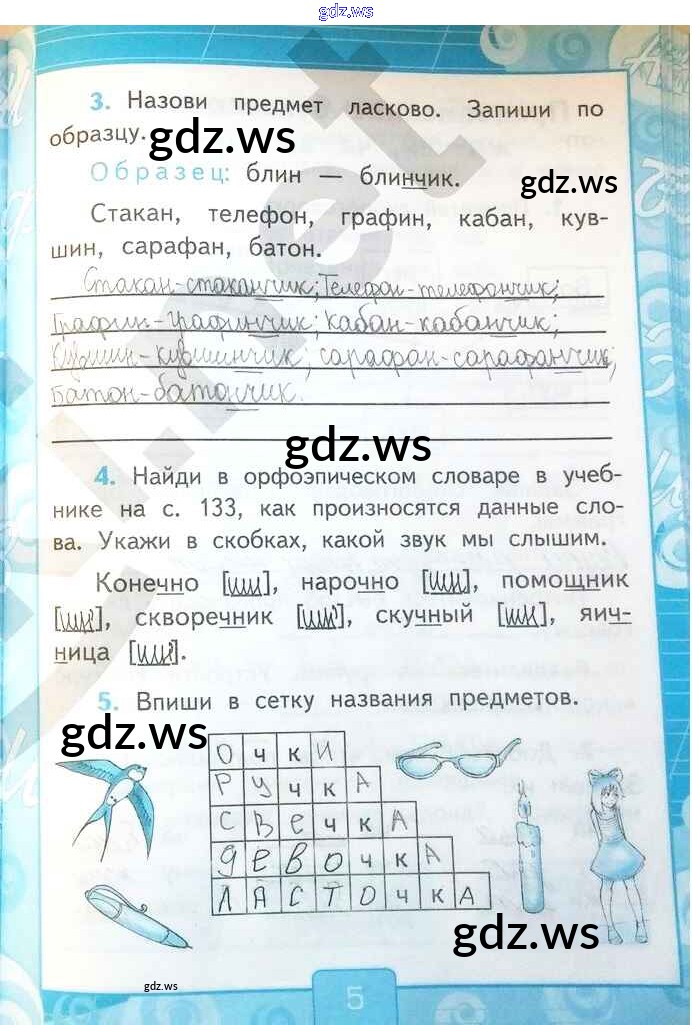 gdz.ws
3. Назови предмет ласково. Запиши по
образцу.
gdz.ws
Образец: блин — блинчик.
gdz.ws
Стакан, телефон, графин, кабан, кув-
шин, сарафан, батон.
Стакан-стаканчик; Телефон-телефончик;
Графин-графинчик; Кабан-кабанчик;
Кувшин-кувшинчик; сарафан-сарафанчик;
Батон-батончик.
gdz.ws
4. Найди в орфоэпическом словаре в учеб-
нике на с. 133, как произносятся данные сло-
ва. Укажи в скобках, какой звук мы слышим.
Конечно [шн], нарочно [шн], помощник
[шн], скворечник [шн], скучный [шн], яич-
ница [шн].
5. Впиши в сетку названия предметов.
gdz.ws
ОчкИ
РУчкА
СВЕчкА
ДЕВОчкА
ЛАСТОчкА
gdz.ws
gdz.ws
5